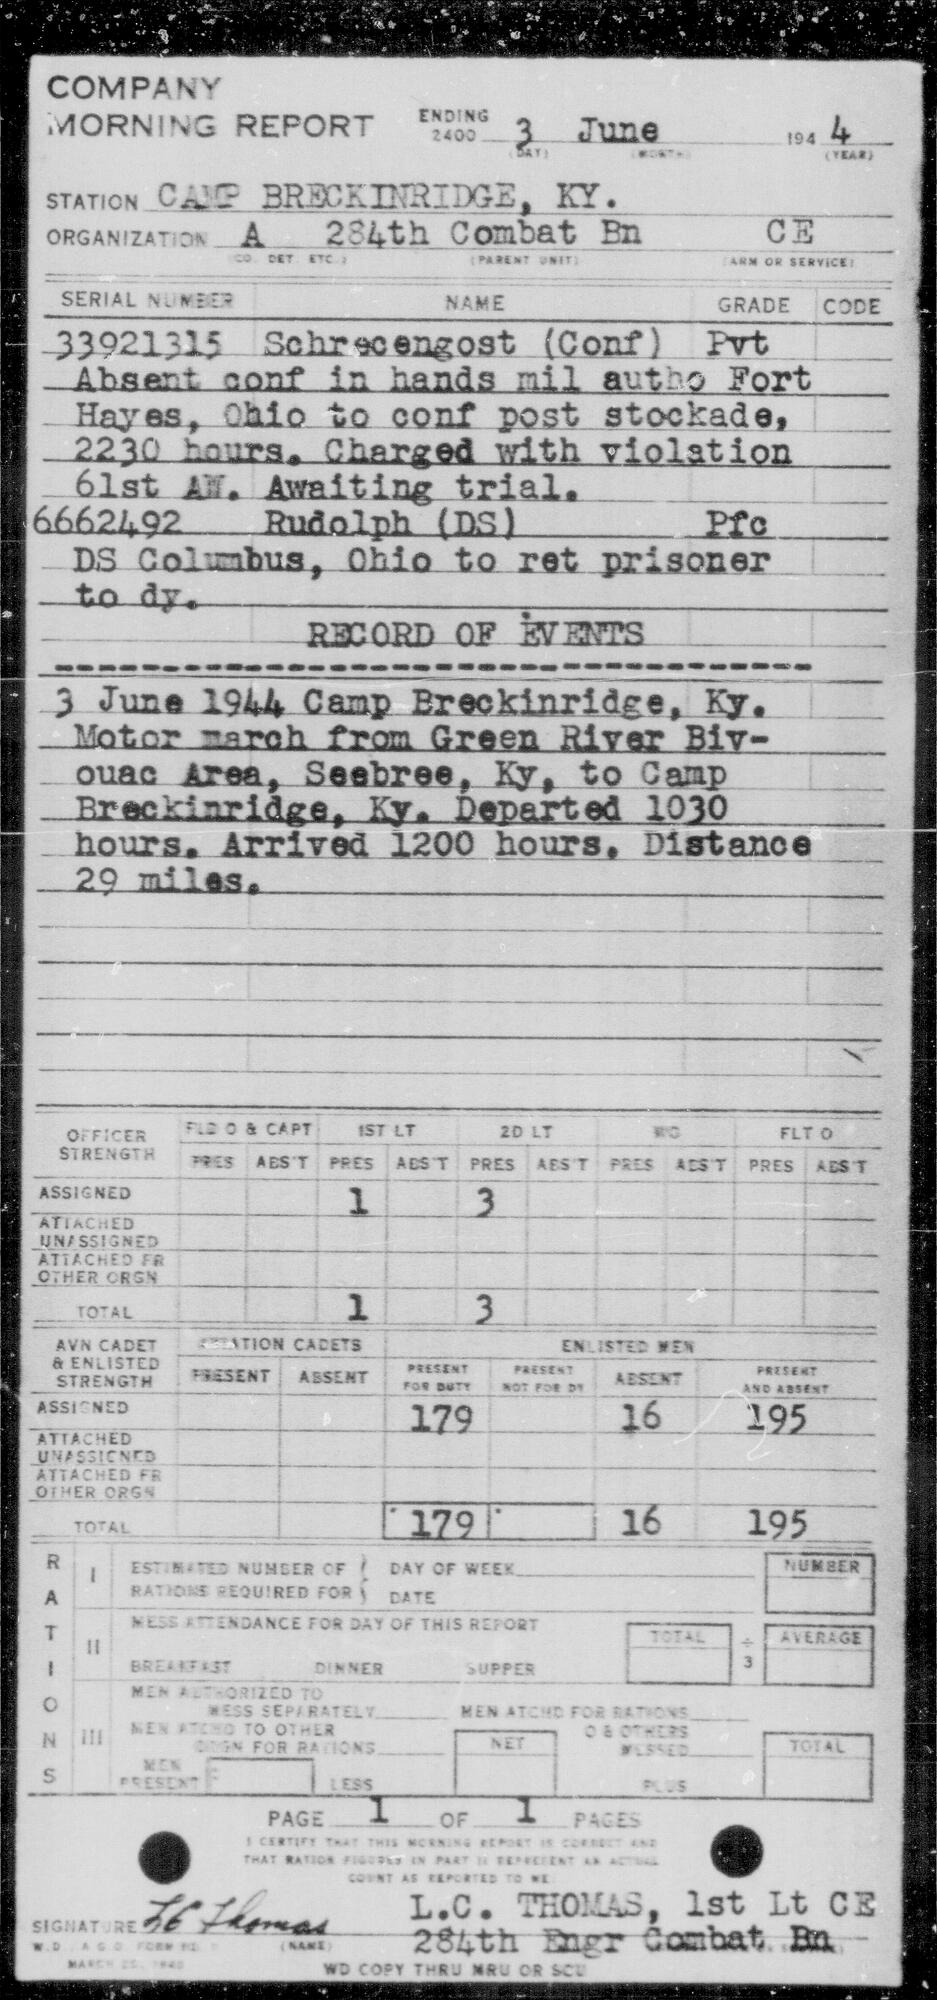 COMPANY
MORNING REPORT ENDING 2400 3 June 194 4
(DAY) (MONTH) (YEAR)
STATION CAMP BRECKINRIDGE, KY.
ORGANIZATION A 284th Combat Bn CE
(CO. DET. ETC.) (PARENT UNIT) (ARM OR SERVICE)
SERIAL NUMBER NAME GRADE CODE
33921315 Schrecengost (Conf) Pvt
Absent conf in hands mil autho Fort
Hayes, Ohio to conf post stockade,
2230 hours. Charged with violation
61st AW. Awaiting trial.
6662492 Rudolph (DS) Pfc
DS Columbus, Ohio to ret prisoner
to dy.
RECORD OF EVENTS
3 June 1944 Camp Breckinridge, Ky.
Motor march from Green River Biv-
ouac Area, Seebree, Ky, to Camp
Breckinridge, Ky. Departed 1030
hours. Arrived 1200 hours. Distance
29 miles.
OFFICER STRENGTH FLD O & CAPT 1ST LT 2D LT WO FLT O
PRES ABS'T PRES ABS'T PRES ABS'T PRES ABS'T PRES ABS'T
ASSIGNED 1 3
ATTACHED UNASSIGNED
ATTACHED FR OTHER ORGN
TOTAL 1 3
AVN CADET & ENLISTED STRENGTH AVIATION CADETS ENLISTED MEN
PRESENT ABSENT PRESENT FOR DUTY PRESENT NOT FOR DY ABSENT PRESENT AND ABSENT
ASSIGNED 179 16 195
ATTACHED UNASSIGNED
ATTACHED FR OTHER ORGN
TOTAL 179 16 195
RATIONS
I ESTIMATED NUMBER OF DAY OF WEEK NUMBER
RATIONS REQUIRED FOR DATE
II MESS ATTENDANCE FOR DAY OF THIS REPORT TOTAL ÷ 3 AVERAGE
BREAKFAST DINNER SUPPER
III MEN AUTHORIZED TO
MESS SEPARATELY MEN ATCHD FOR RATIONS
MEN ATCHD TO OTHER O & OTHERS
ORGN FOR RATIONS NET MESSED TOTAL
MEN PRESENT LESS PLUS
PAGE 1 OF 1 PAGES
I CERTIFY THAT THIS MORNING REPORT IS CORRECT AND
THAT RATION FIGURES IN PART II REPRESENT AN ACTUAL
COUNT AS REPORTED TO ME
L.C. THOMAS, 1st Lt CE
SIGNATURE LC Thomas 284th Engr Combat Bn
W.D., A.G.O. FORM NO. (NAME)
MARCH
WD COPY THRU MRU OR SCU